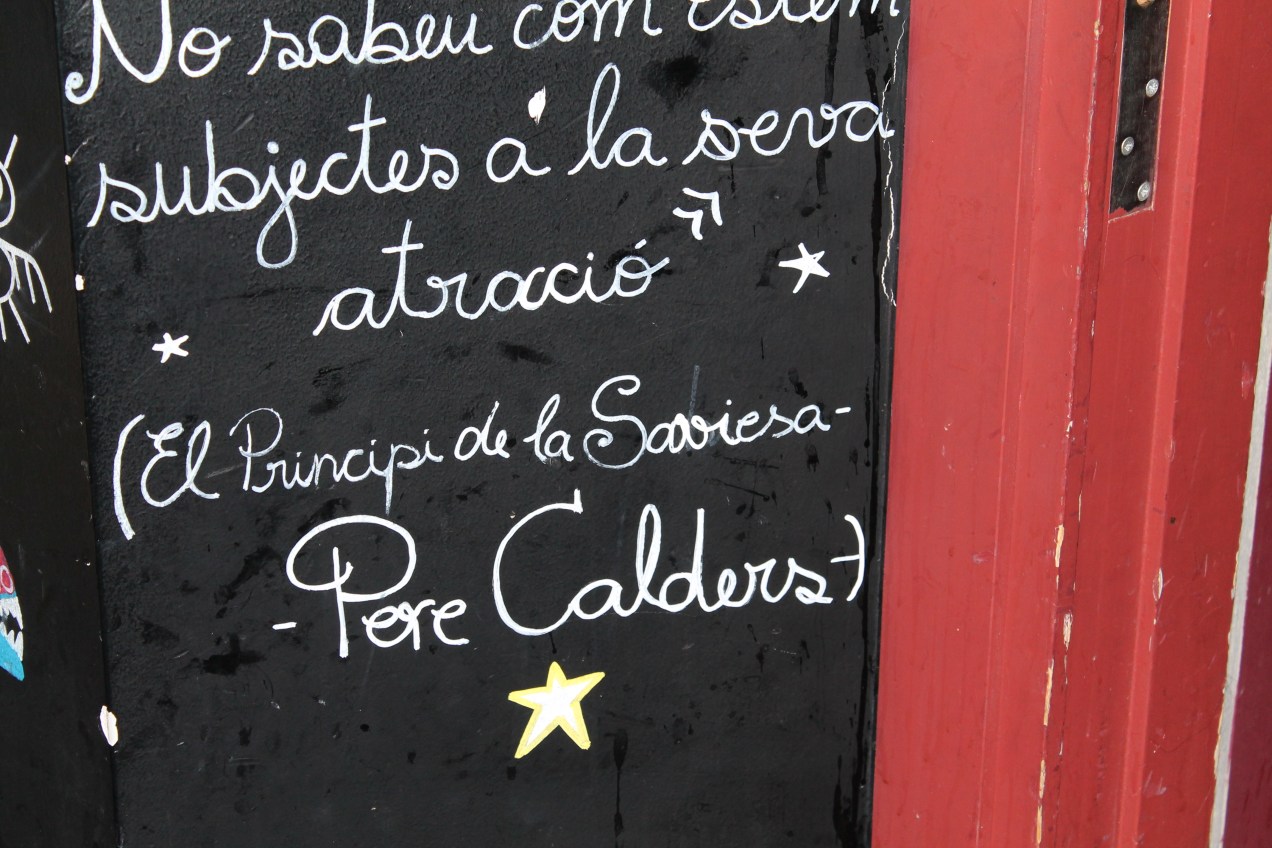 No sabeu com estem
subjectes a la seva
atracció >>
(El Principi de la Saviesa-
- Pere Calders-)